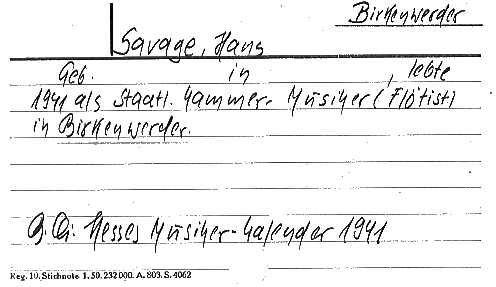 Birkenwerder
Savage, Hans
Geb. in , lebte
1941 als Staatl. Kammer-Musiker (Flötist)
in Birkenwerder.
Hesses Musiker-Kalender 1941
Reg. 10. Stichnote 1. 50. 232000. A. 803. S. 4062